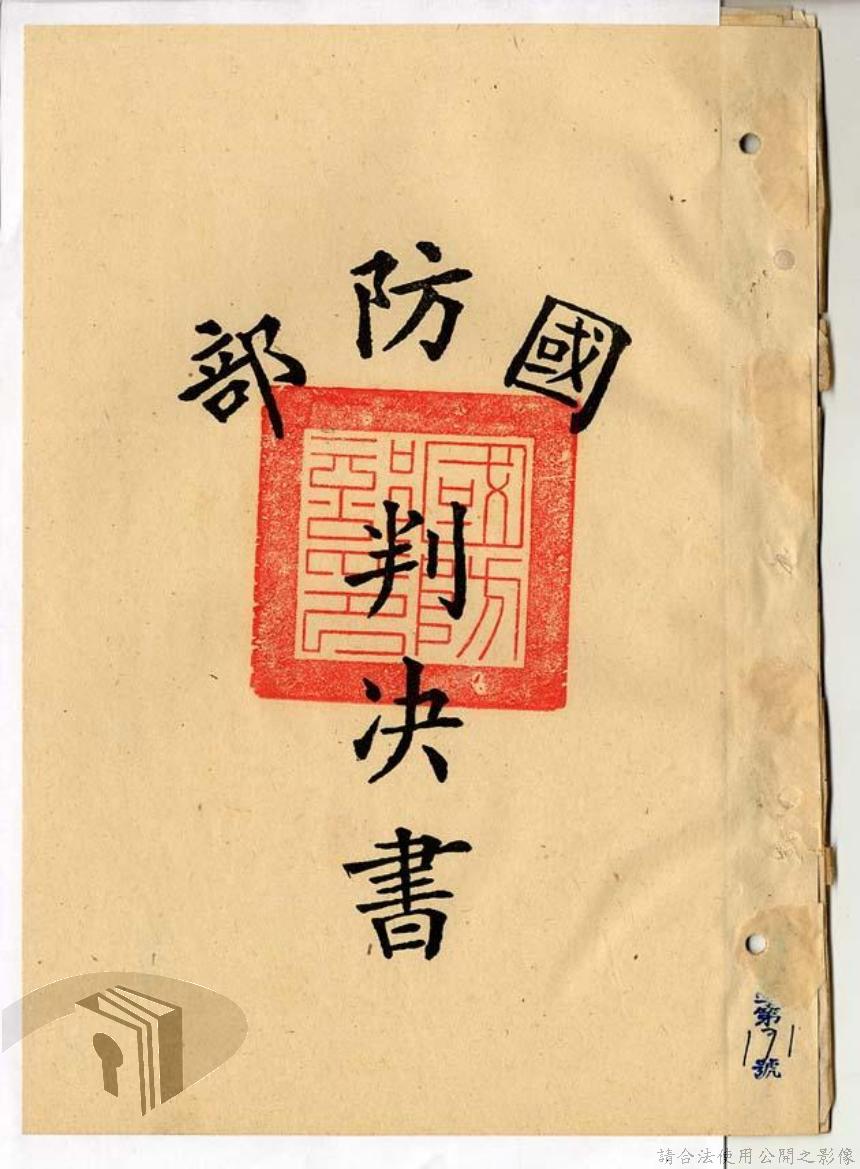 國防部
判決書
國防部印
第171號
請合法使用公開之影像